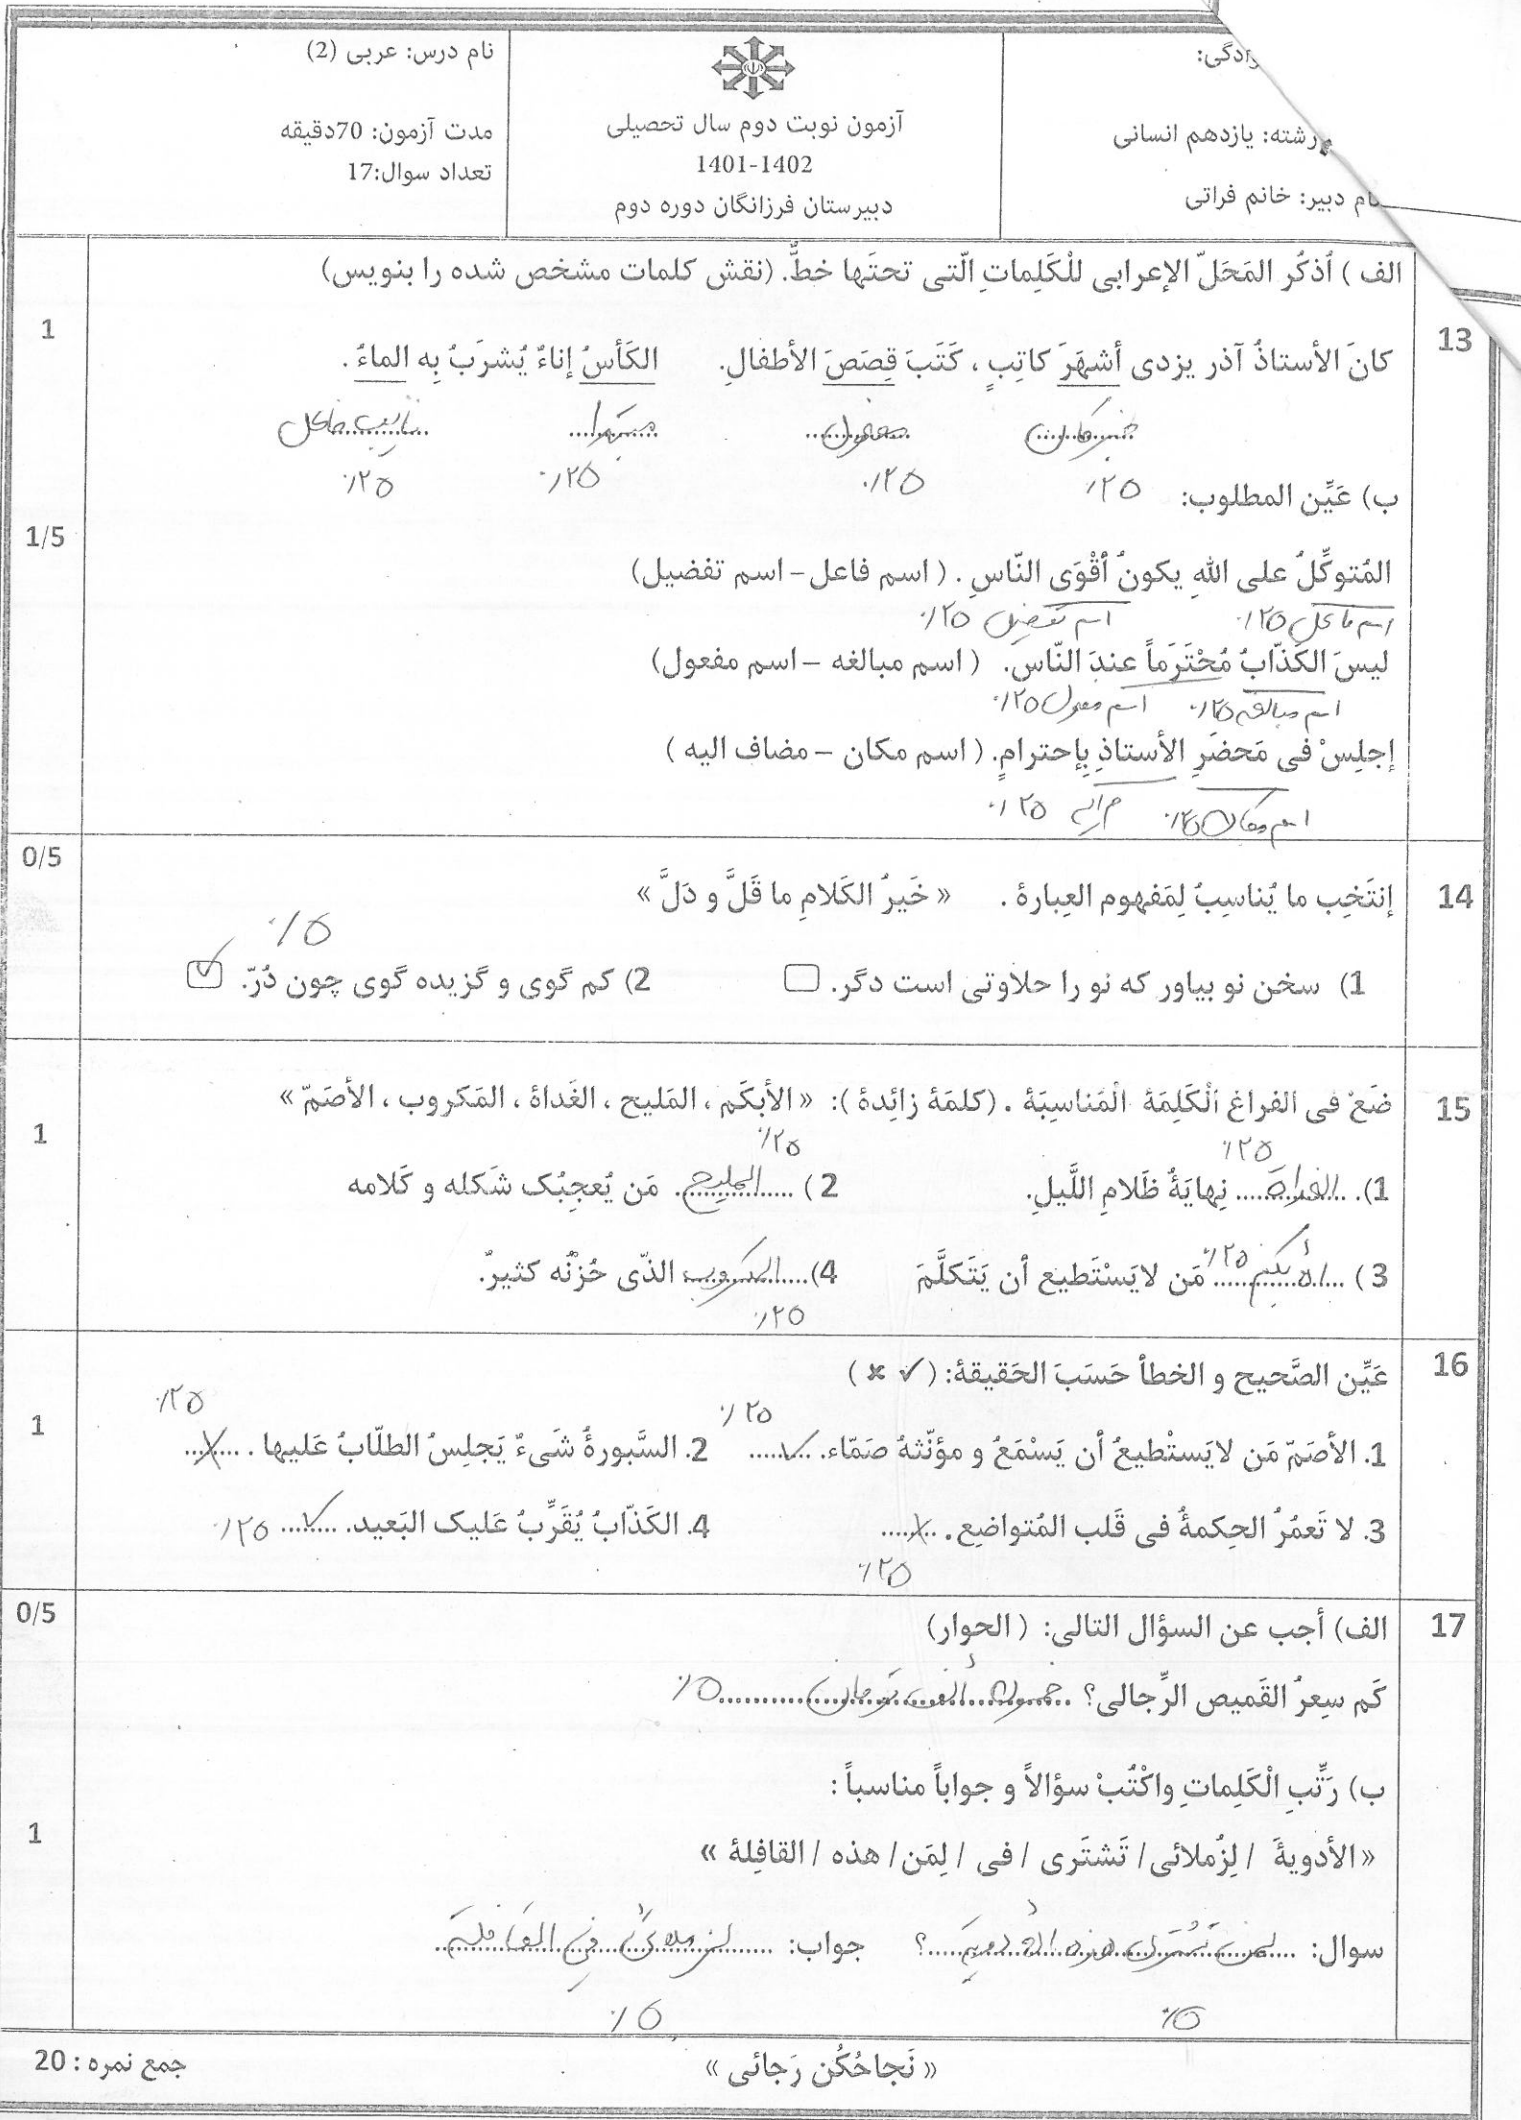 ادگی:
رشته: یازدهم انسانی
ام دبیر: خانم فراتی
آزمون نوبت دوم سال تحصیلی
1401-1402
دبیرستان فرزانگان دوره دوم
نام درس: عربی (2)
مدت آزمون: 70دقیقه
تعداد سوال:17
13
الف ) اُذکُر المَحَلّ الإعرابی للْکَلِماتِ الّتی تحتَها خطٌّ. (نقش کلمات مشخص شده را بنویس)
1
کانَ الأستاذُ آذر یزدی أشهَرَ کاتِبٍ ، کَتَبَ قِصَصَ الأطفالِ. الکَأسُ إناءٌ یُشرَبُ بِه الماءُ .
خبر کان مفعول مبتدا نایب فاعل
٠/٢٥ ٠/٢٥ ٠/٢٥ ٠/٢٥
ب) عَیِّن المطلوب:
1/5
المُتوکِّلُ علی اللهِ یکونُ أقْوَی النّاسِ . ( اسم فاعل– اسم تفضیل)
اسم فاعل ٠/٢٥ اسم تفضیل ٠/٢٥
لیسَ الکَذّابُ مُحْتَرَماً عندَ النّاسِ. ( اسم مبالغه – اسم مفعول)
اسم مبالغه ٠/٢٥ اسم مفعول ٠/٢٥
إجلِسْ فی مَحضَرِ الأستاذِ بِإحترامٍ. ( اسم مکان – مضاف الیه )
اسم مکان ٠/٢٥ م الیه ٠/٢٥
14
0/5
إنتَخِب ما یُناسِبُ لِمَفهوم العِبارة . « خَیرُ الکَلامِ ما قَلَّ و دَلَّ »
٠/٥
1) سخن نو بیاور که نو را حلاوتی است دگر. 2) کم گوی و گزیده گوی چون دُرّ. ✓
15
1
ضَعْ فی الفراغ اَلْکَلِمَةَ الْمَناسِبَةَ . (کلمَة زائِدة ): « الأبکَم ، المَلیح ، الغَداة ، المَکروب ، الأصَمّ »
٠/٢٥ ٠/٢٥
1). الغداة نِهایَةُ ظَلامِ اللَّیلِ. 2 ) الملیح. مَن یُعجِبُک شَکله و کَلامه
3 ) الأبکم ٠/٢٥ مَن لایَسْتَطیع أن یَتَکلَّمَ 4) المکروب الذّی حُزْنُه کثیرٌ.
٠/٢٥
16
عَیِّن الصَّحیح و الخطأ حَسَبَ الحَقیقة: ( ✓ ✗ )
1
٠/٢٥ ٠/٢٥
1. الأصَمّ مَن لایَستْطیعُ أن یَسْمَعُ و مؤنّثهُ صَمّاء. ✓ 2. السَّبورةُ شَیءٌ یَجلِسُ الطلّابُ عَلیها . ✗
3. لا تَعمُرُ الحِکمةُ فی قَلب المُتواضِع . ✗ 4. الکَذّابُ یُقَرِّبُ عَلیک البَعید. ✓ ٠/٢٥
٠/٢٥
17
0/5
الف) أجب عن السؤال التالی: ( الحوار)
کَم سِعرُ القَمیص الرِّجالی؟ خمسون ألف تومان ٠/٥
ب) رَتِّبِ الْکَلِماتِ واکْتُبْ سؤالاً و جواباً مناسباً :
1
« الأدویةَ / لِزُملائی/ تَشتَری / فی / لِمَن/ هذه / القافِلة »
سوال: لمن تَشتری هذه الأدویة؟ جواب: لزملائی فی القافلة
٠/٥ ٠/٥
« نَجاحُکُن رَجائی »
جمع نمره : 20